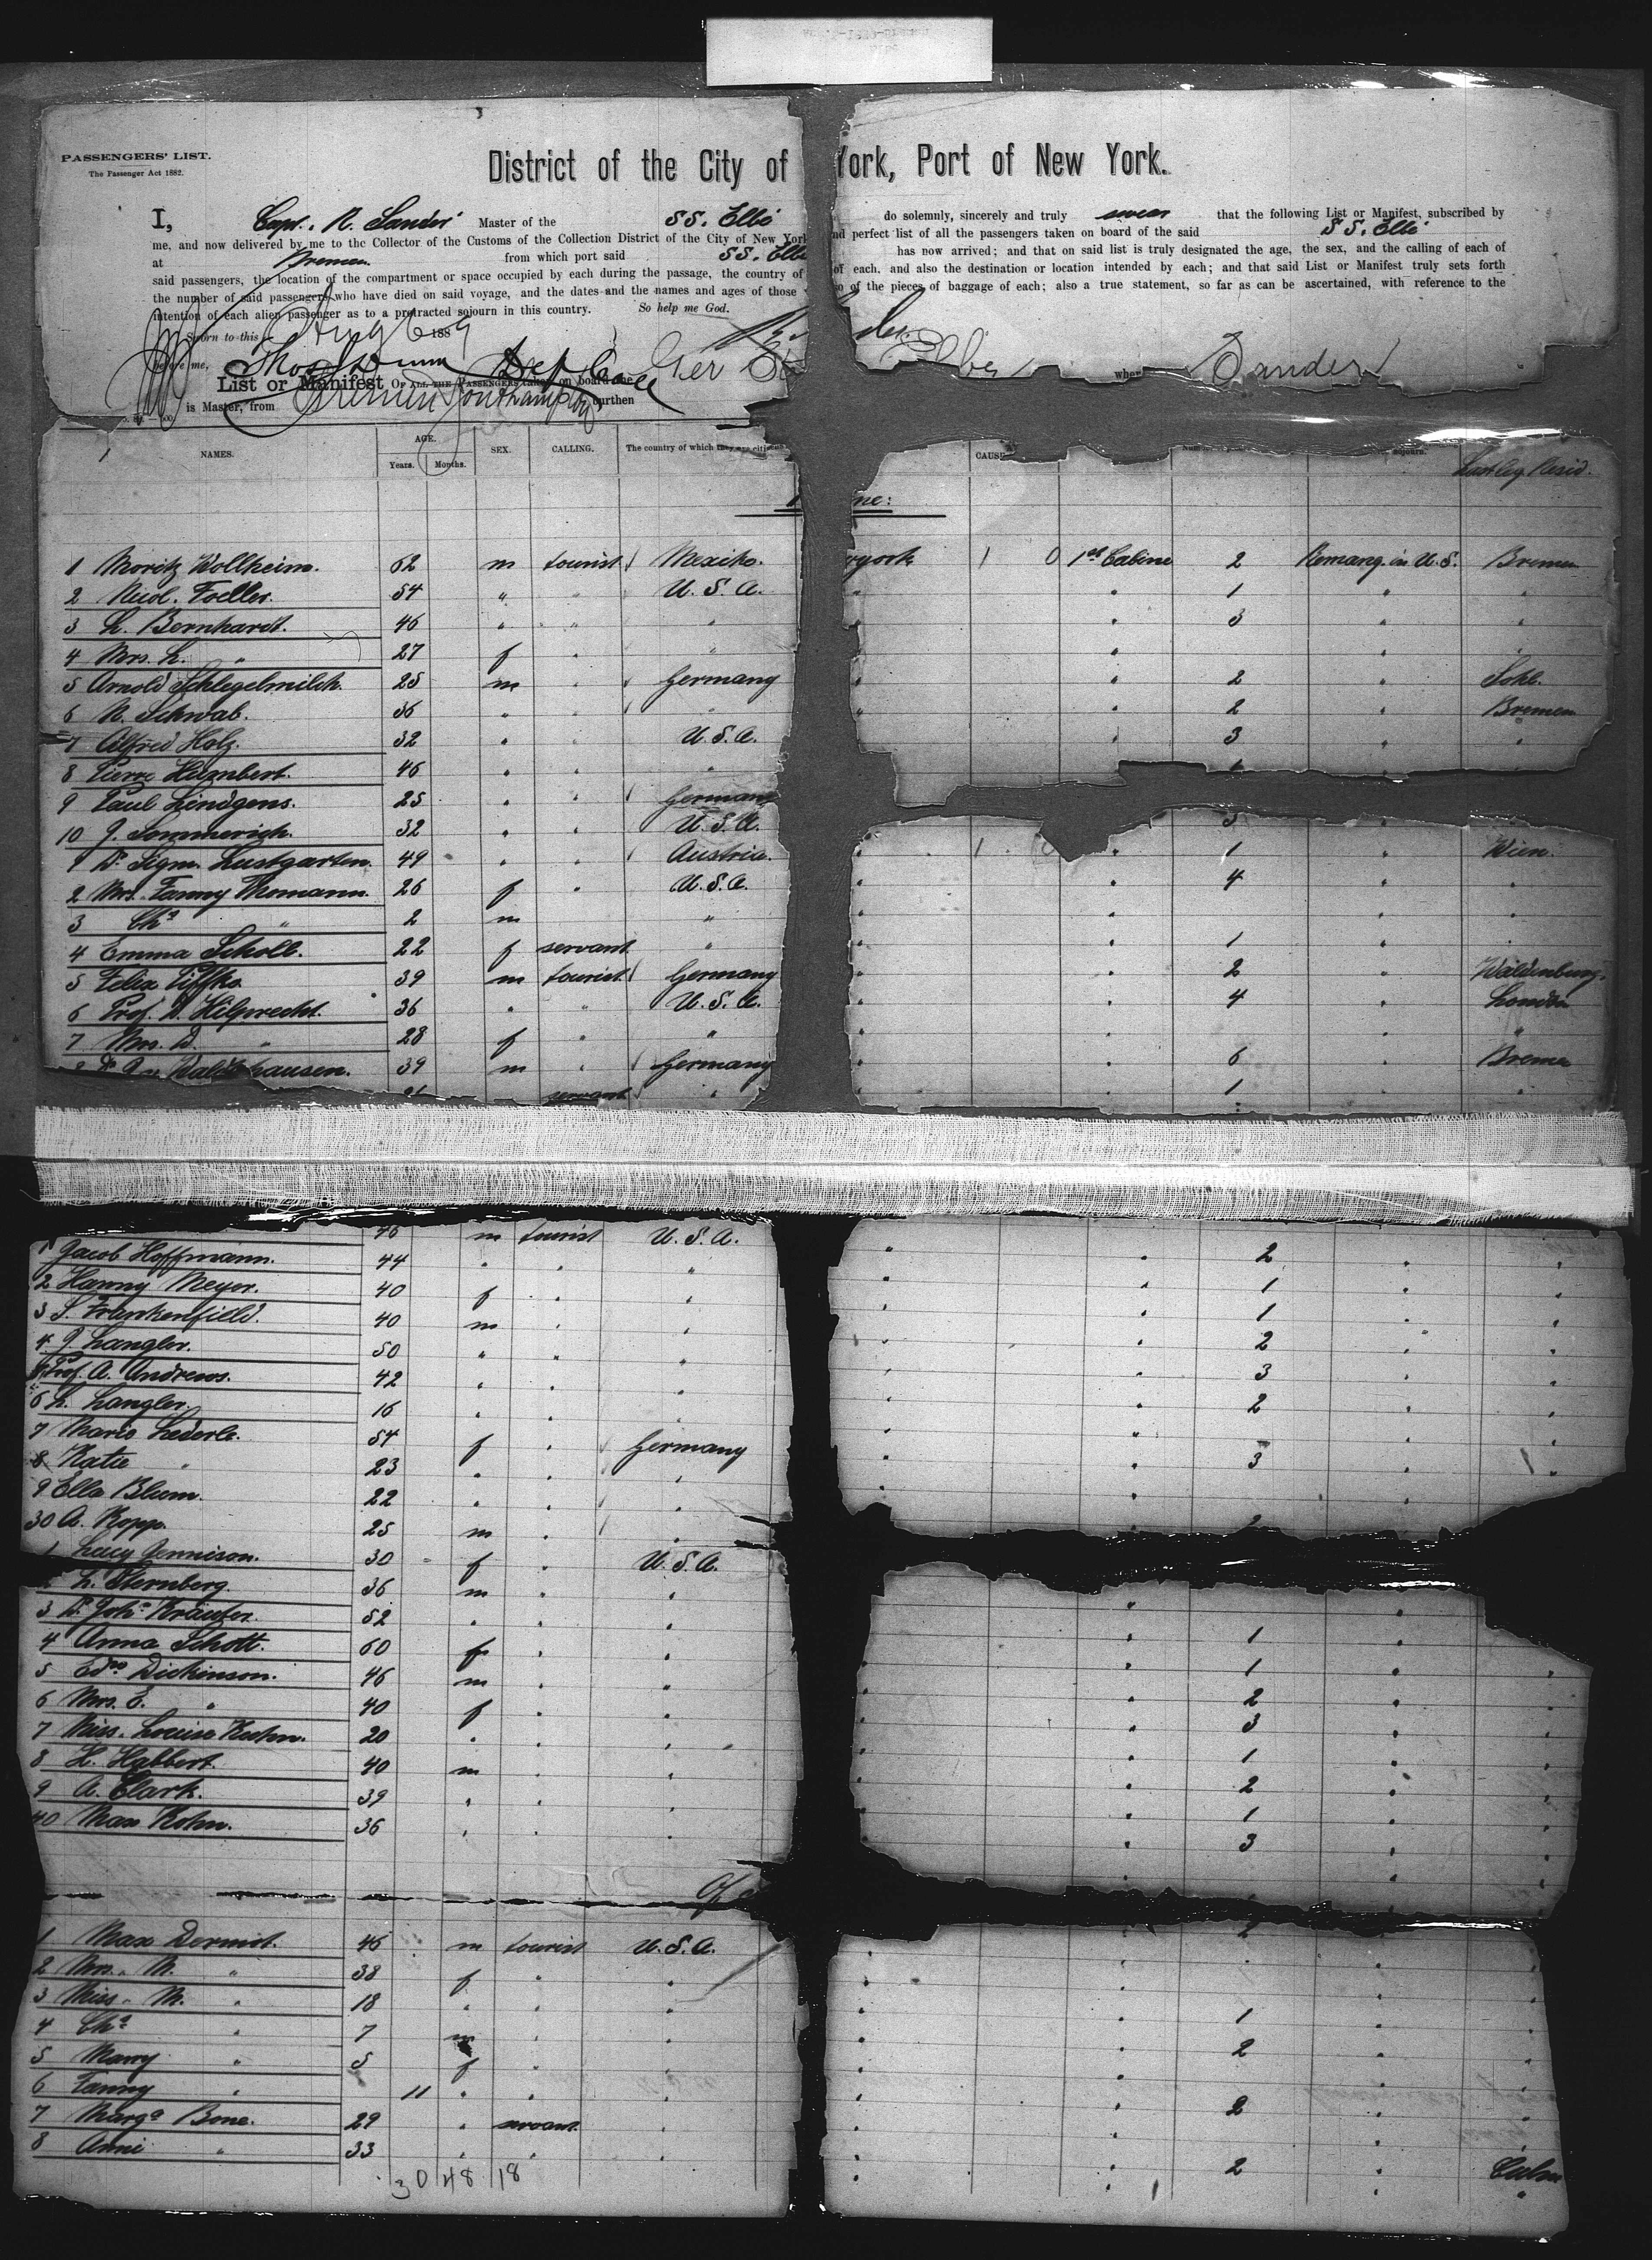 PASSENGERS' LIST.
The Passenger Act 1882.
District of the City of York, Port of New York.
I, Capt. R. Sander Master of the SS. Elbe do solemnly, sincerely and truly swear that the following List or Manifest, subscribed by
me, and now delivered by me to the Collector of the Customs of the Collection District of the City of New York nd perfect list of all the passengers taken on board of the said SS. Elbe
at Bremen from which port said SS. Elbe has now arrived; and that on said list is truly designated the age, the sex, and the calling of each of
said passengers, the location of the compartment or space occupied by each during the passage, the country of of each, and also the destination or location intended by each; and that said List or Manifest truly sets forth
the number of said passengers who have died on said voyage, and the dates and the names and ages of those o of the pieces of baggage of each; also a true statement, so far as can be ascertained, with reference to the
intention of each alien passenger as to a protracted sojourn in this country. So help me God.
Sworn to this Aug 6 1889
before me, Thos Dunn Dep Coll Ger Elbe wher Sander
List or Manifest OF ALL THE PASSENGERS taken on board the
is Master, from Bremen Southampton burthen
NAMES. AGE. Years. Months. SEX. CALLING. The country of which they are citi CAUSE sojourn. Last leg. Resid.
1 Moritz Wollheim. 62 m tourist Mexiko. wyork 1 0 1st Cabine 2 Remang. in U.S. Bremen
2 Nicol. Foeller. 54 " " U.S.A. " " 1 " "
3 L. Bernhardt. 46 " " " " 3 " "
4 Mrs. L. " 27 f " " " " "
5 Arnold Schlegelmilch. 25 m " Germany " " 2 " Sohl.
6 N. Schwab. 36 " " " " " 2 " Bremen
7 Alfred Holz. 32 " " U.S.A. " 3 " "
8 Pierre Humbert. 46 " " "
9 Paul Lindgens. 25 " " Germany
10 J. Sommerich. 32 " " U.S.A. 3
1 Dr. Sigm. Lustgarten. 49 " " Austria. " 1 " 1 " Wien.
2 Mrs. Fanny Thomann. 26 f " U.S.A. " " 4 " "
3 Chs. " 2 m " " " " "
4 Emma Scholl. 22 f servant " " " 1 " "
5 Felix Piffko 39 m tourist Germany " " 2 " Waldenburg.
6 Prof. D. Hilprecht. 36 " " U.S.A. " " 4 " London
7 Mrs. D. " 28 f " " " " " "
hausen. 39 m " Germany " " 6 " Breme
servant " " " 1 " "
46 m tourist U.S.A.
1 Jacob Hoffmann. 44 " " " " " 2 " "
2 Hanny Meyer. 40 f " " " " 1 " "
3 S. Frankenfield. 40 m " " " " 1 " "
4 J. Langler. 50 " " " " " 2 " "
5 Prof. A. Andrews. 42 " " " " " 3 " "
6 L. Langler. 16 " " " " " 2 " "
7 Marie Lederle. 54 f " Germany " " "
8 Katie " 23 " " " " " 3 " "
9 Ella Blum. 22 " " " " "
30 A. Kopp 25 m " "
1 Lucy Jennison. 30 f " U.S.A.
L. Sternberg. 36 m " "
3 Dr. Johs. Kräuter. 52 " " "
4 Anna Schott. 60 f " " " 1 "
5 Edw. Dickinson. 46 m " " " 1 " "
6 Mrs. E. " 40 f " " " 2 " "
7 Miss. Louise Kuhn. 20 " " " " 3 " "
8 H. Habbert. 40 m " " " 1 " "
9 A. Clark. 39 " " " " 2 " "
40 Max Kohn. 36 " " " " 1 " "
3
1 Max Dermit. 46 m tourist U.S.A.
2 Mrs. M. " 38 f " "
3 Miss. M. " 18 " " "
4 Chs. " 7 m " " " 1 " "
5 Marry " 5 f " " " 2 " "
6 Fanny " 11 " " "
7 Marga. Bone. 29 " servant " " 2 " "
8 Anni " 33 " " "
2 " Culm
30 48 18